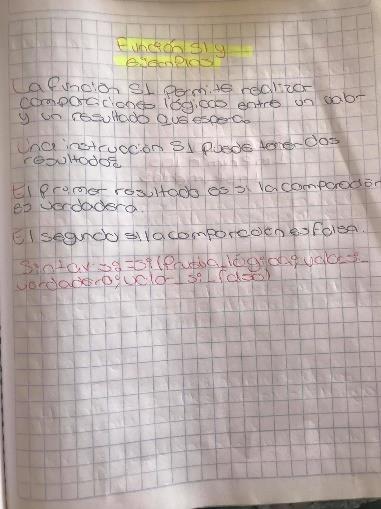 Función SI y
ejemplos
La función SI permite realizar
comparaciones lógicas entre un valor
y un resultado que espera.
Una instrucción SI puede tener dos
resultados
El primer resultado es si la comparación
es verdadera.
El segundo si la comparación es falsa.
Sintaxis =Si(Prueba lógica; valor si
verdadero; valor si falso)